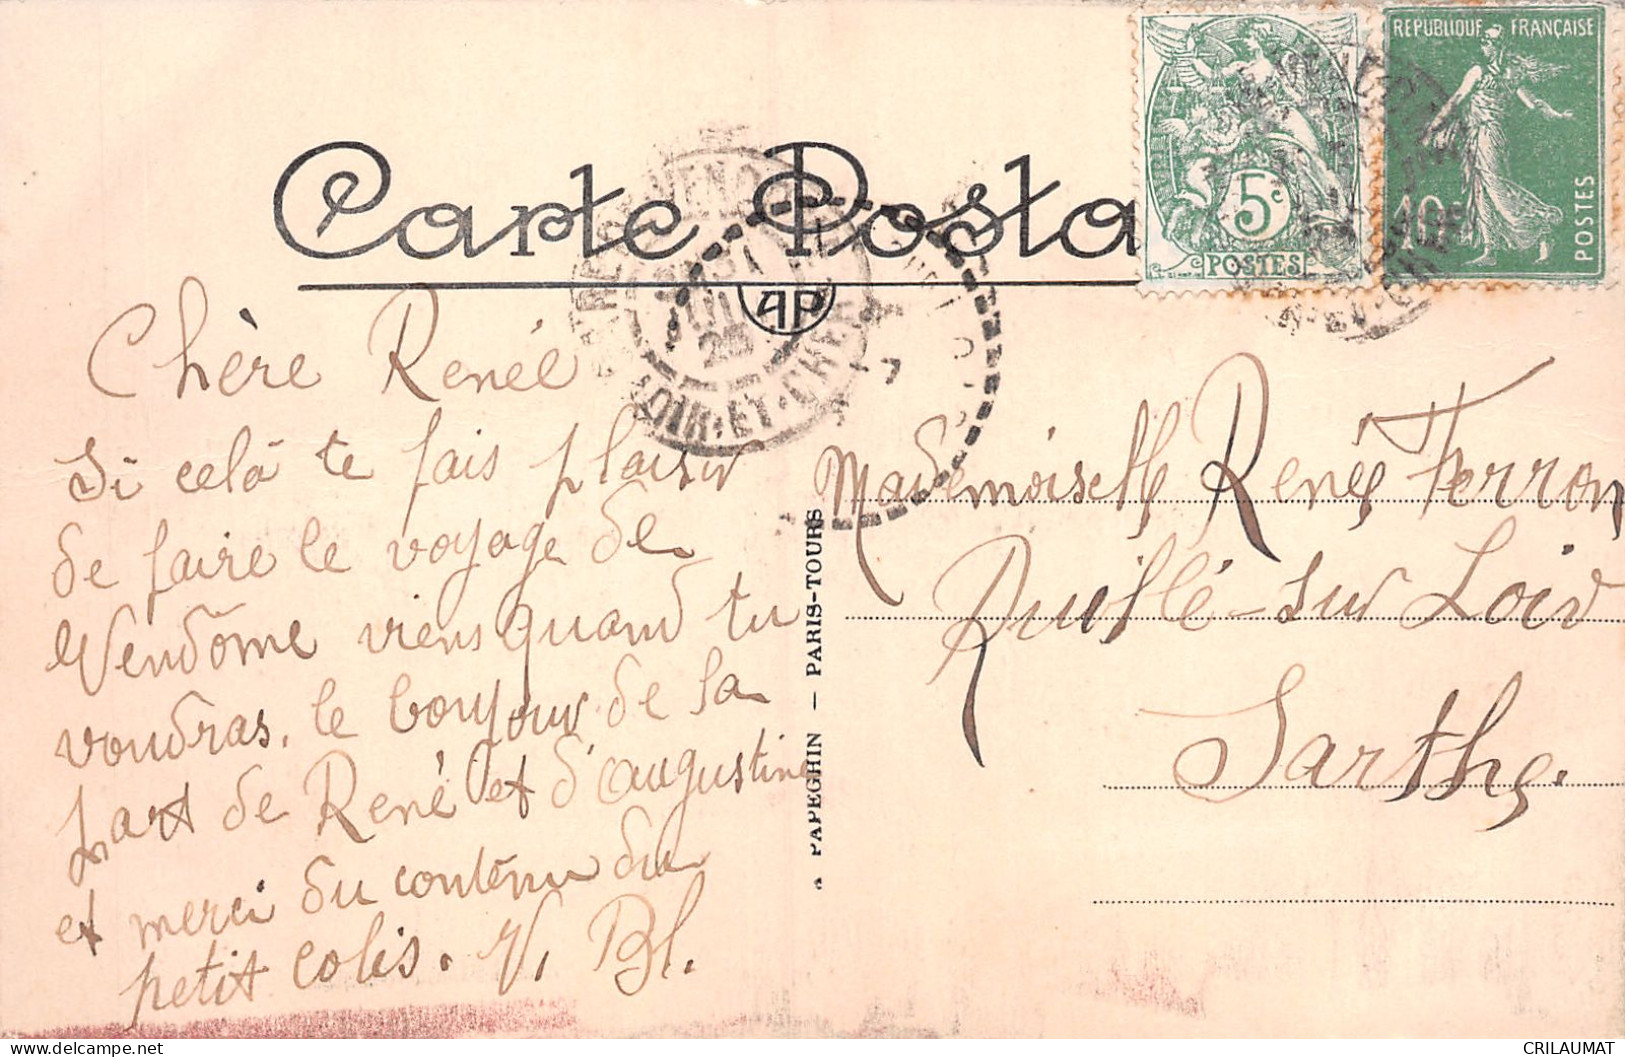 Carte Posta
REPUBLIQUE FRANÇAISE
10c
POSTES
5c
POSTES
AP
VENDÔME
LOIR-ET-CHER
Chère Renée
Si celà te fais plaisir
de faire le voyage de
Vendôme viens quand tu
voudras, le bonjour de la
part de René et d'augustine
et merci du contenu du
petit colis. V. Bl.
PAPEGHIN — PARIS-TOURS
Mademoiselle Renée Ferron
Ruillé-sur Loir
Sarthe.
www.delcampe.net
CRILAUMAT